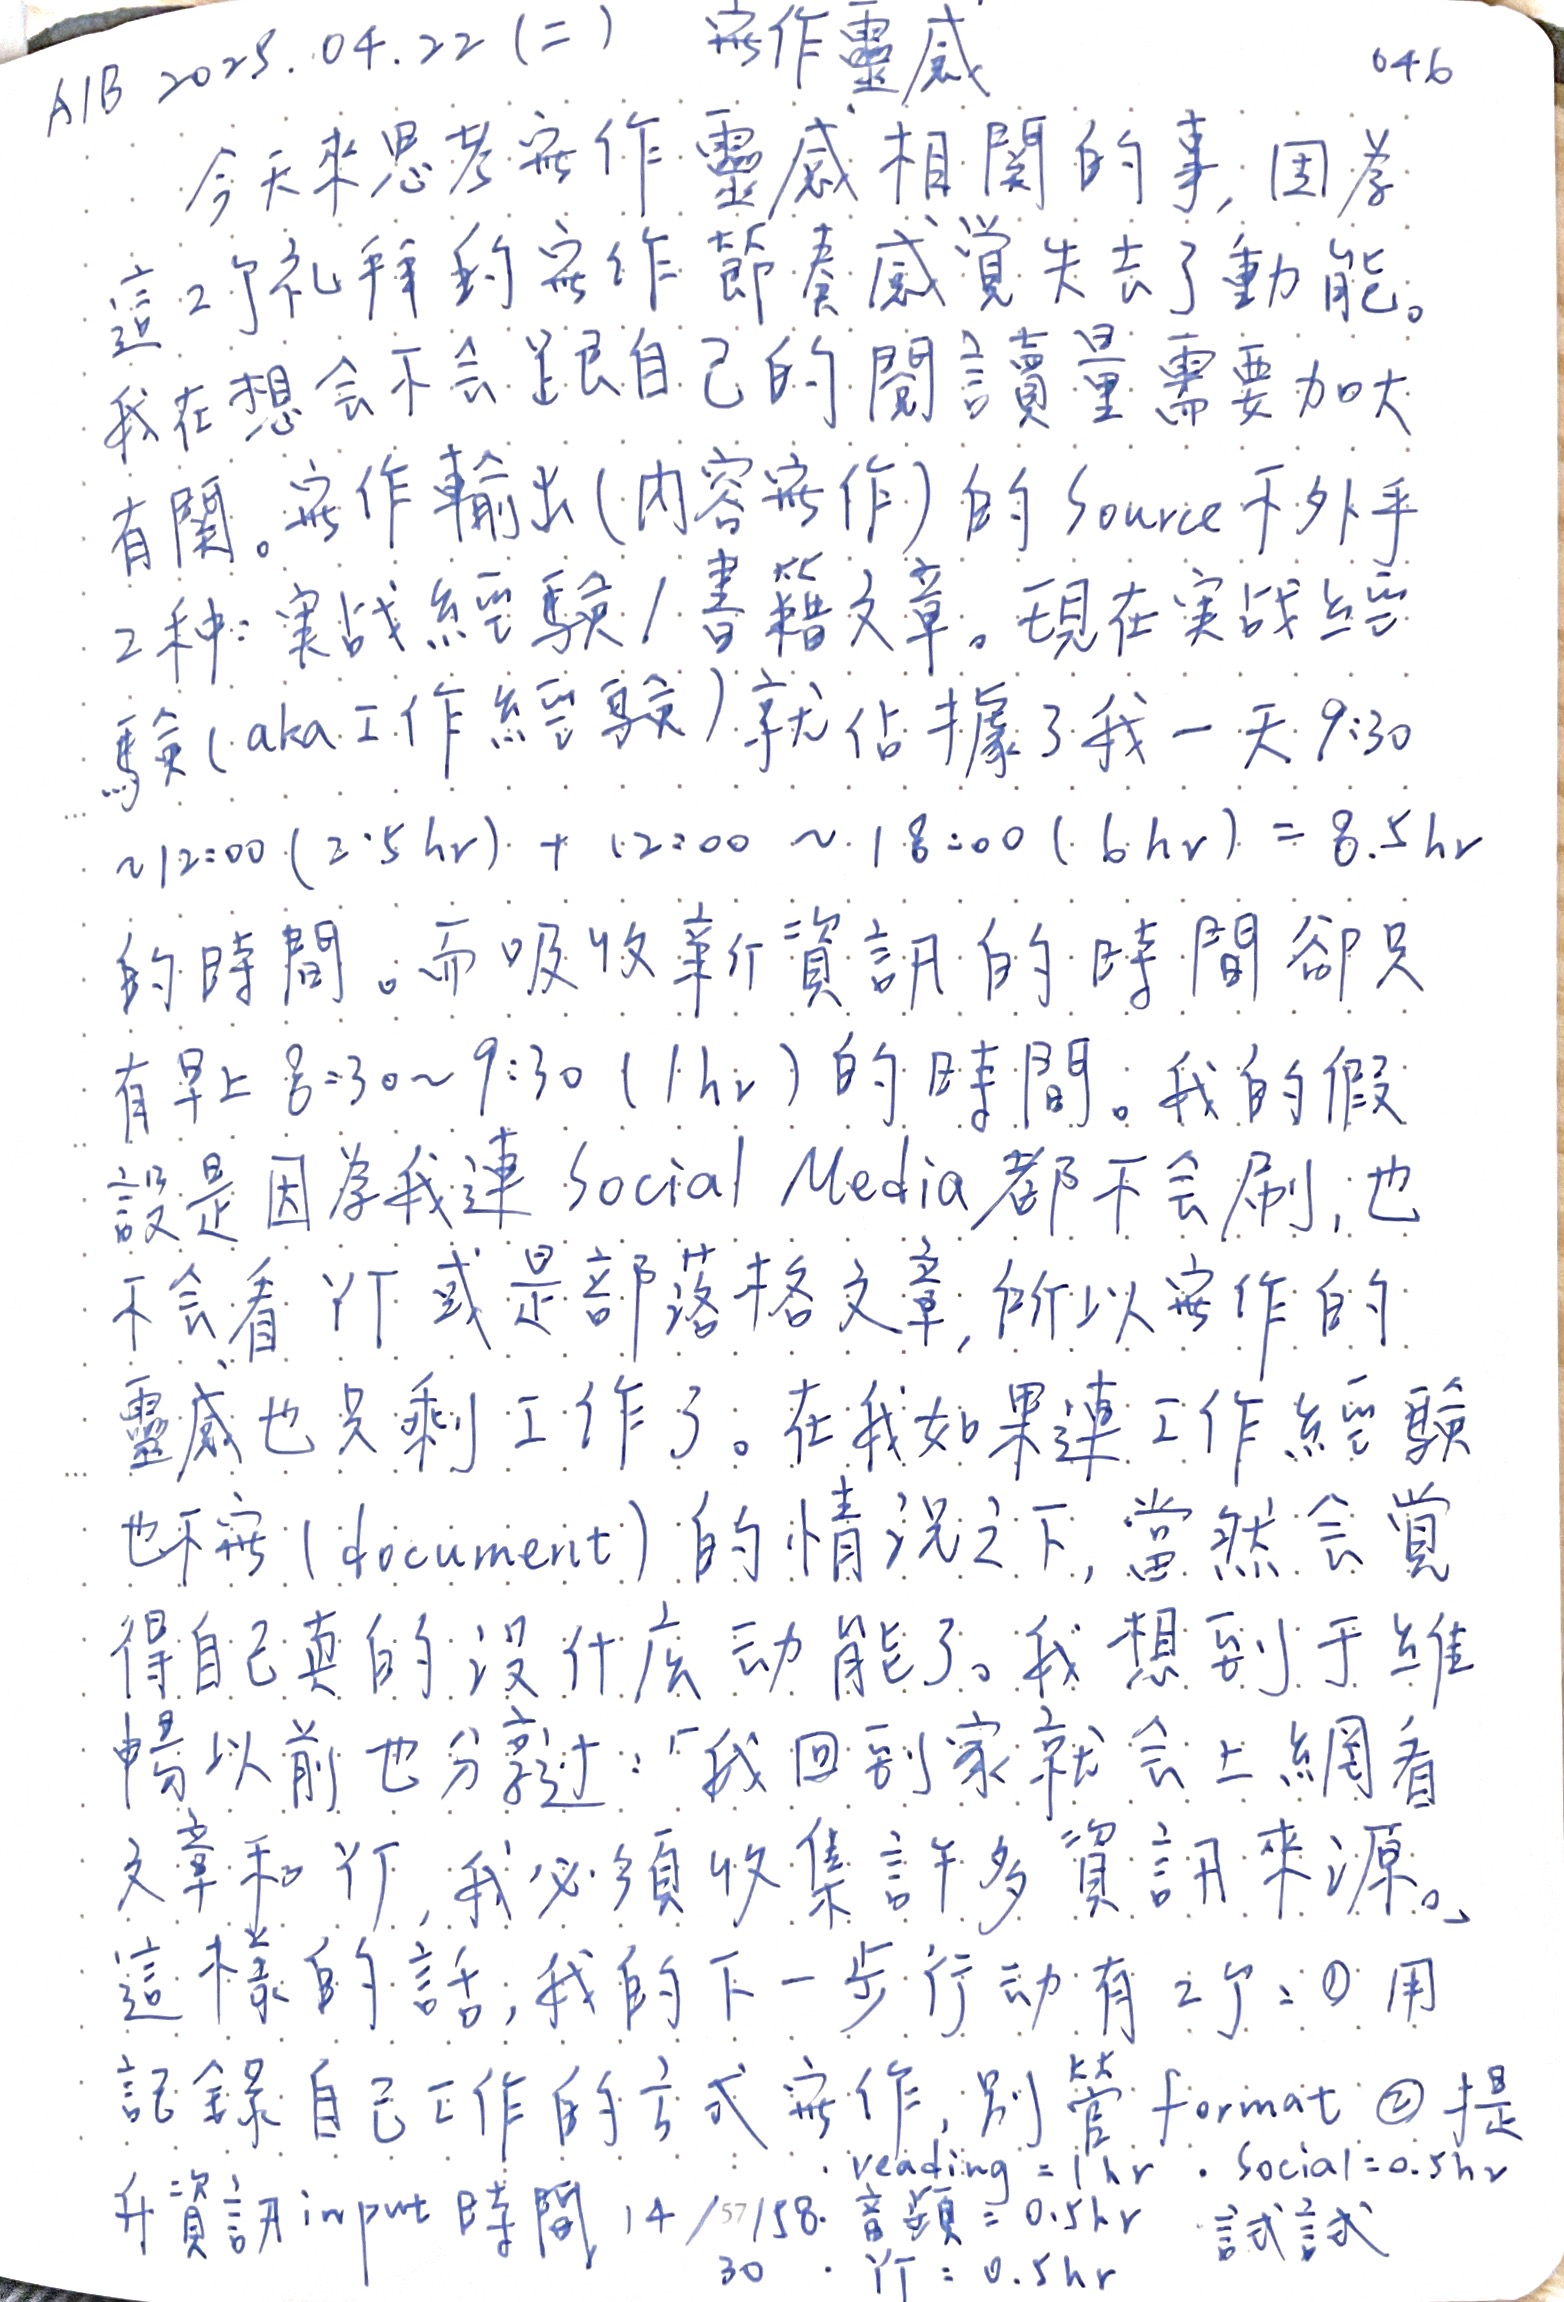 AIB 2025.04.22 (二) 寫作靈感 046
今天來思考寫作靈感相關的事, 因為
這2个礼拜的寫作節奏感覚失去了動能。
我在想会不会跟自己的閱讀量需要加大
有関。寫作輸出(内容寫作)的 Source 不外乎
2种: 実战經驗/書籍文章。現在実战經
驗(aka工作經驗)就佔據了我一天9:30
~12:00 (2.5hr) + 12:00 ~ 18:00 (6hr) = 8.5hr
的時間。而吸收新資訊的時間卻只
有早上 8:30~9:30 (1hr) 的時間。我的假
設是因為我連 Social Media 都不会刷, 也
不会看 YT 或是部落格文章, 所以寫作的
靈感也只剩工作了。在我如果連工作經驗
也不寫 (document) 的情況之下, 當然会覚
得自己真的沒什広动能了。我想到于維
暢以前也分享过:「我回到家就会上網看
文章和 YT, 我必須收集許多資訊來源。」
這樣的話, 我的下一步行动有2个: ① 用
記錄自己工作的方式寫作, 別管 format ② 提
升資訊 input 時間 14/57/58
30
· reading = 1hr · Social = 0.5hr
· 音頻 = 0.5hr 試試
· YT = 0.5hr